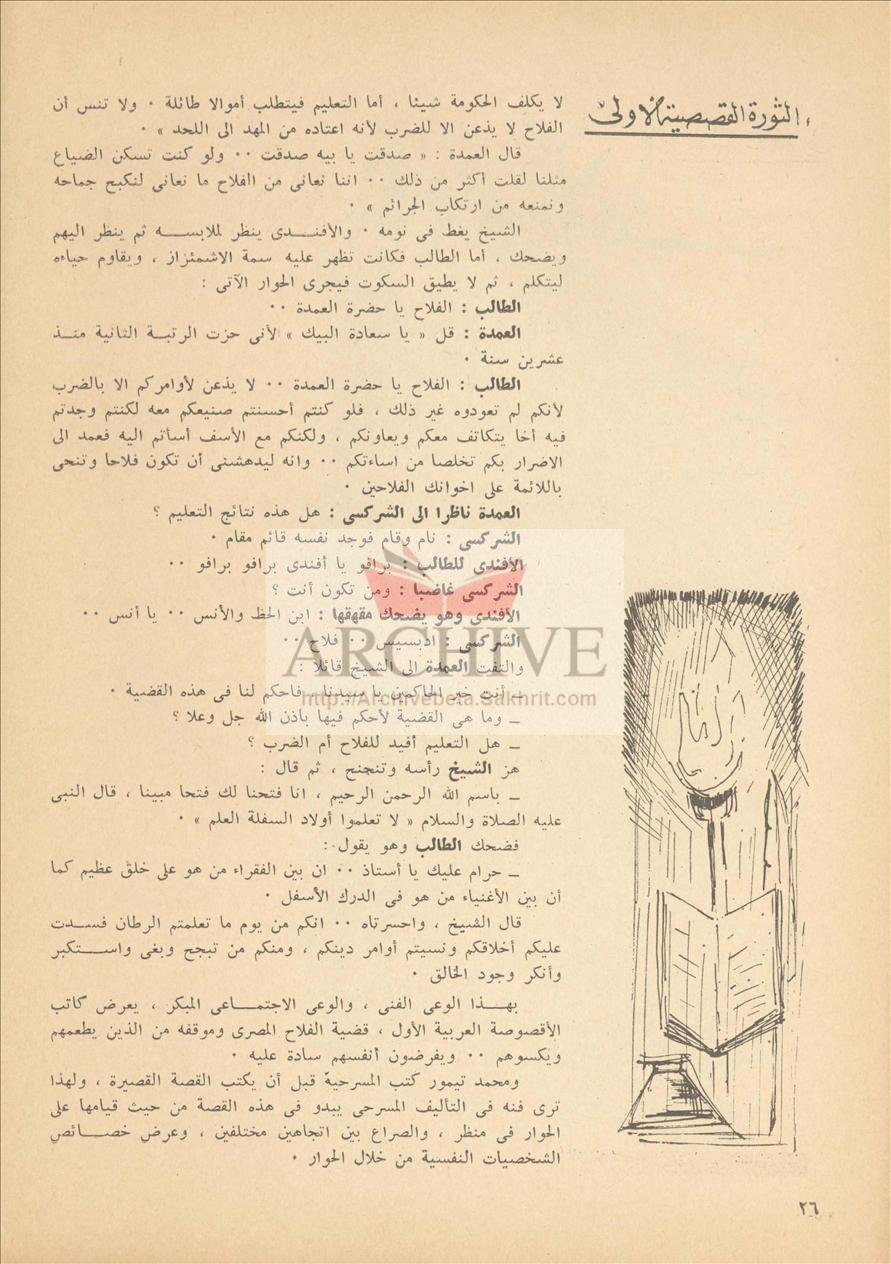 الثورة القصصية الأولى
لا يكلف الحكومة شيئا ، أما التعليم فيتطلب أموالا طائلة ٠ ولا تنس أن
الفلاح لا يذعن الا للضرب لأنه اعتاده من المهد الى اللحد » ٠
قال العمدة : « صدقت يا بيه صدقت ٠٠ ولو كنت تسكن الضياع
مثلنا لقلت أكثر من ذلك ٠٠ اننا نعانى من الفلاح ما نعانى لنكبح جماحه
ونمنعه من ارتكاب الجرائم » ٠
الشيخ يغط فى نومه ٠ والأفندى ينظر لملابسه ثم ينظر اليهم
ويضحك ، أما الطالب فكانت تظهر عليه سمة الاشمئزاز ، ويقاوم حياءه
ليتكلم ، ثم لا يطيق السكوت فيجرى الحوار الآتى :
الطالب : الفلاح يا حضرة العمدة ٠٠
العمدة : قل « يا سعادة البيك » لأنى حزت الرتبة الثانية منذ
عشرين سنة ٠
الطالب : الفلاح يا حضرة العمدة ٠٠ لا يذعن لأوامركم الا بالضرب
لأنكم لم تعودوه غير ذلك ، فلو كنتم أحسنتم صنيعكم معه لكنتم وجدتم
فيه أخا يتكاتف معكم ويعاونكم ، ولكنكم مع الأسف أسأتم اليه فعمد الى
الاضرار بكم تخلصا من اساءتكم ٠٠ وانه ليدهشنى أن تكون فلاحا وتنحى
باللائمة على اخوانك الفلاحين ٠
العمدة ناظرا الى الشركسى : هل هذه نتائج التعليم ؟
الشركسى : نام وقام فوجد نفسه قائم مقام ٠
الأفندى للطالب : برافو يا أفندى برافو برافو ٠٠
الشركسى غاضبا : ومن تكون أنت ؟
الأفندى وهو يضحك مقهقها : ابن الحظ والأنس ٠٠ يا أنس ٠٠
الشركسى : ادبسيس ٠٠ فلاح ٠٠
والتفت العمدة الى الشيخ قائلا :
ــ أنت خير الحاكمين يا سيدنا ، فاحكم لنا فى هذه القضية ٠
ــ وما هى القضية لأحكم فيها باذن الله جل وعلا ؟
ــ هل التعليم أفيد للفلاح أم الضرب ؟
هز الشيخ رأسه وتنحنح ، ثم قال :
ــ باسم الله الرحمن الرحيم ، انا فتحنا لك فتحا مبينا ، قال النبى
عليه الصلاة والسلام « لا تعلموا أولاد السفلة العلم » ٠
فضحك الطالب وهو يقول :
ــ حرام عليك يا أستاذ ٠٠ ان بين الفقراء من هو على خلق عظيم كما
أن بين الأغنياء من هو فى الدرك الأسفل ٠
قال الشيخ ، واحسرتاه ٠٠ انكم من يوم ما تعلمتم الرطان فسدت
عليكم أخلاقكم ونسيتم أوامر دينكم ، ومنكم من تبجح وبغى واستكبر
وأنكر وجود الخالق ٠
بهذا الوعى الفنى ، والوعى الاجتماعى المبكر ، يعرض كاتب
الأقصوصة العربية الأول ، قضية الفلاح المصرى وموقفه من الذين يطعمهم
ويكسوهم ٠٠ ويفرضون أنفسهم سادة عليه ٠
ومحمد تيمور كتب المسرحية قبل أن يكتب القصة القصيرة ، ولهذا
ترى فنه فى التأليف المسرحى يبدو فى هذه القصة من حيث قيامها على
الحوار فى منظر ، والصراع بين اتجاهين مختلفين ، وعرض خصائص
الشخصيات النفسية من خلال الحوار ٠
ARCHIVE
http://Archivebeta.Sakhrit.com
٢٦